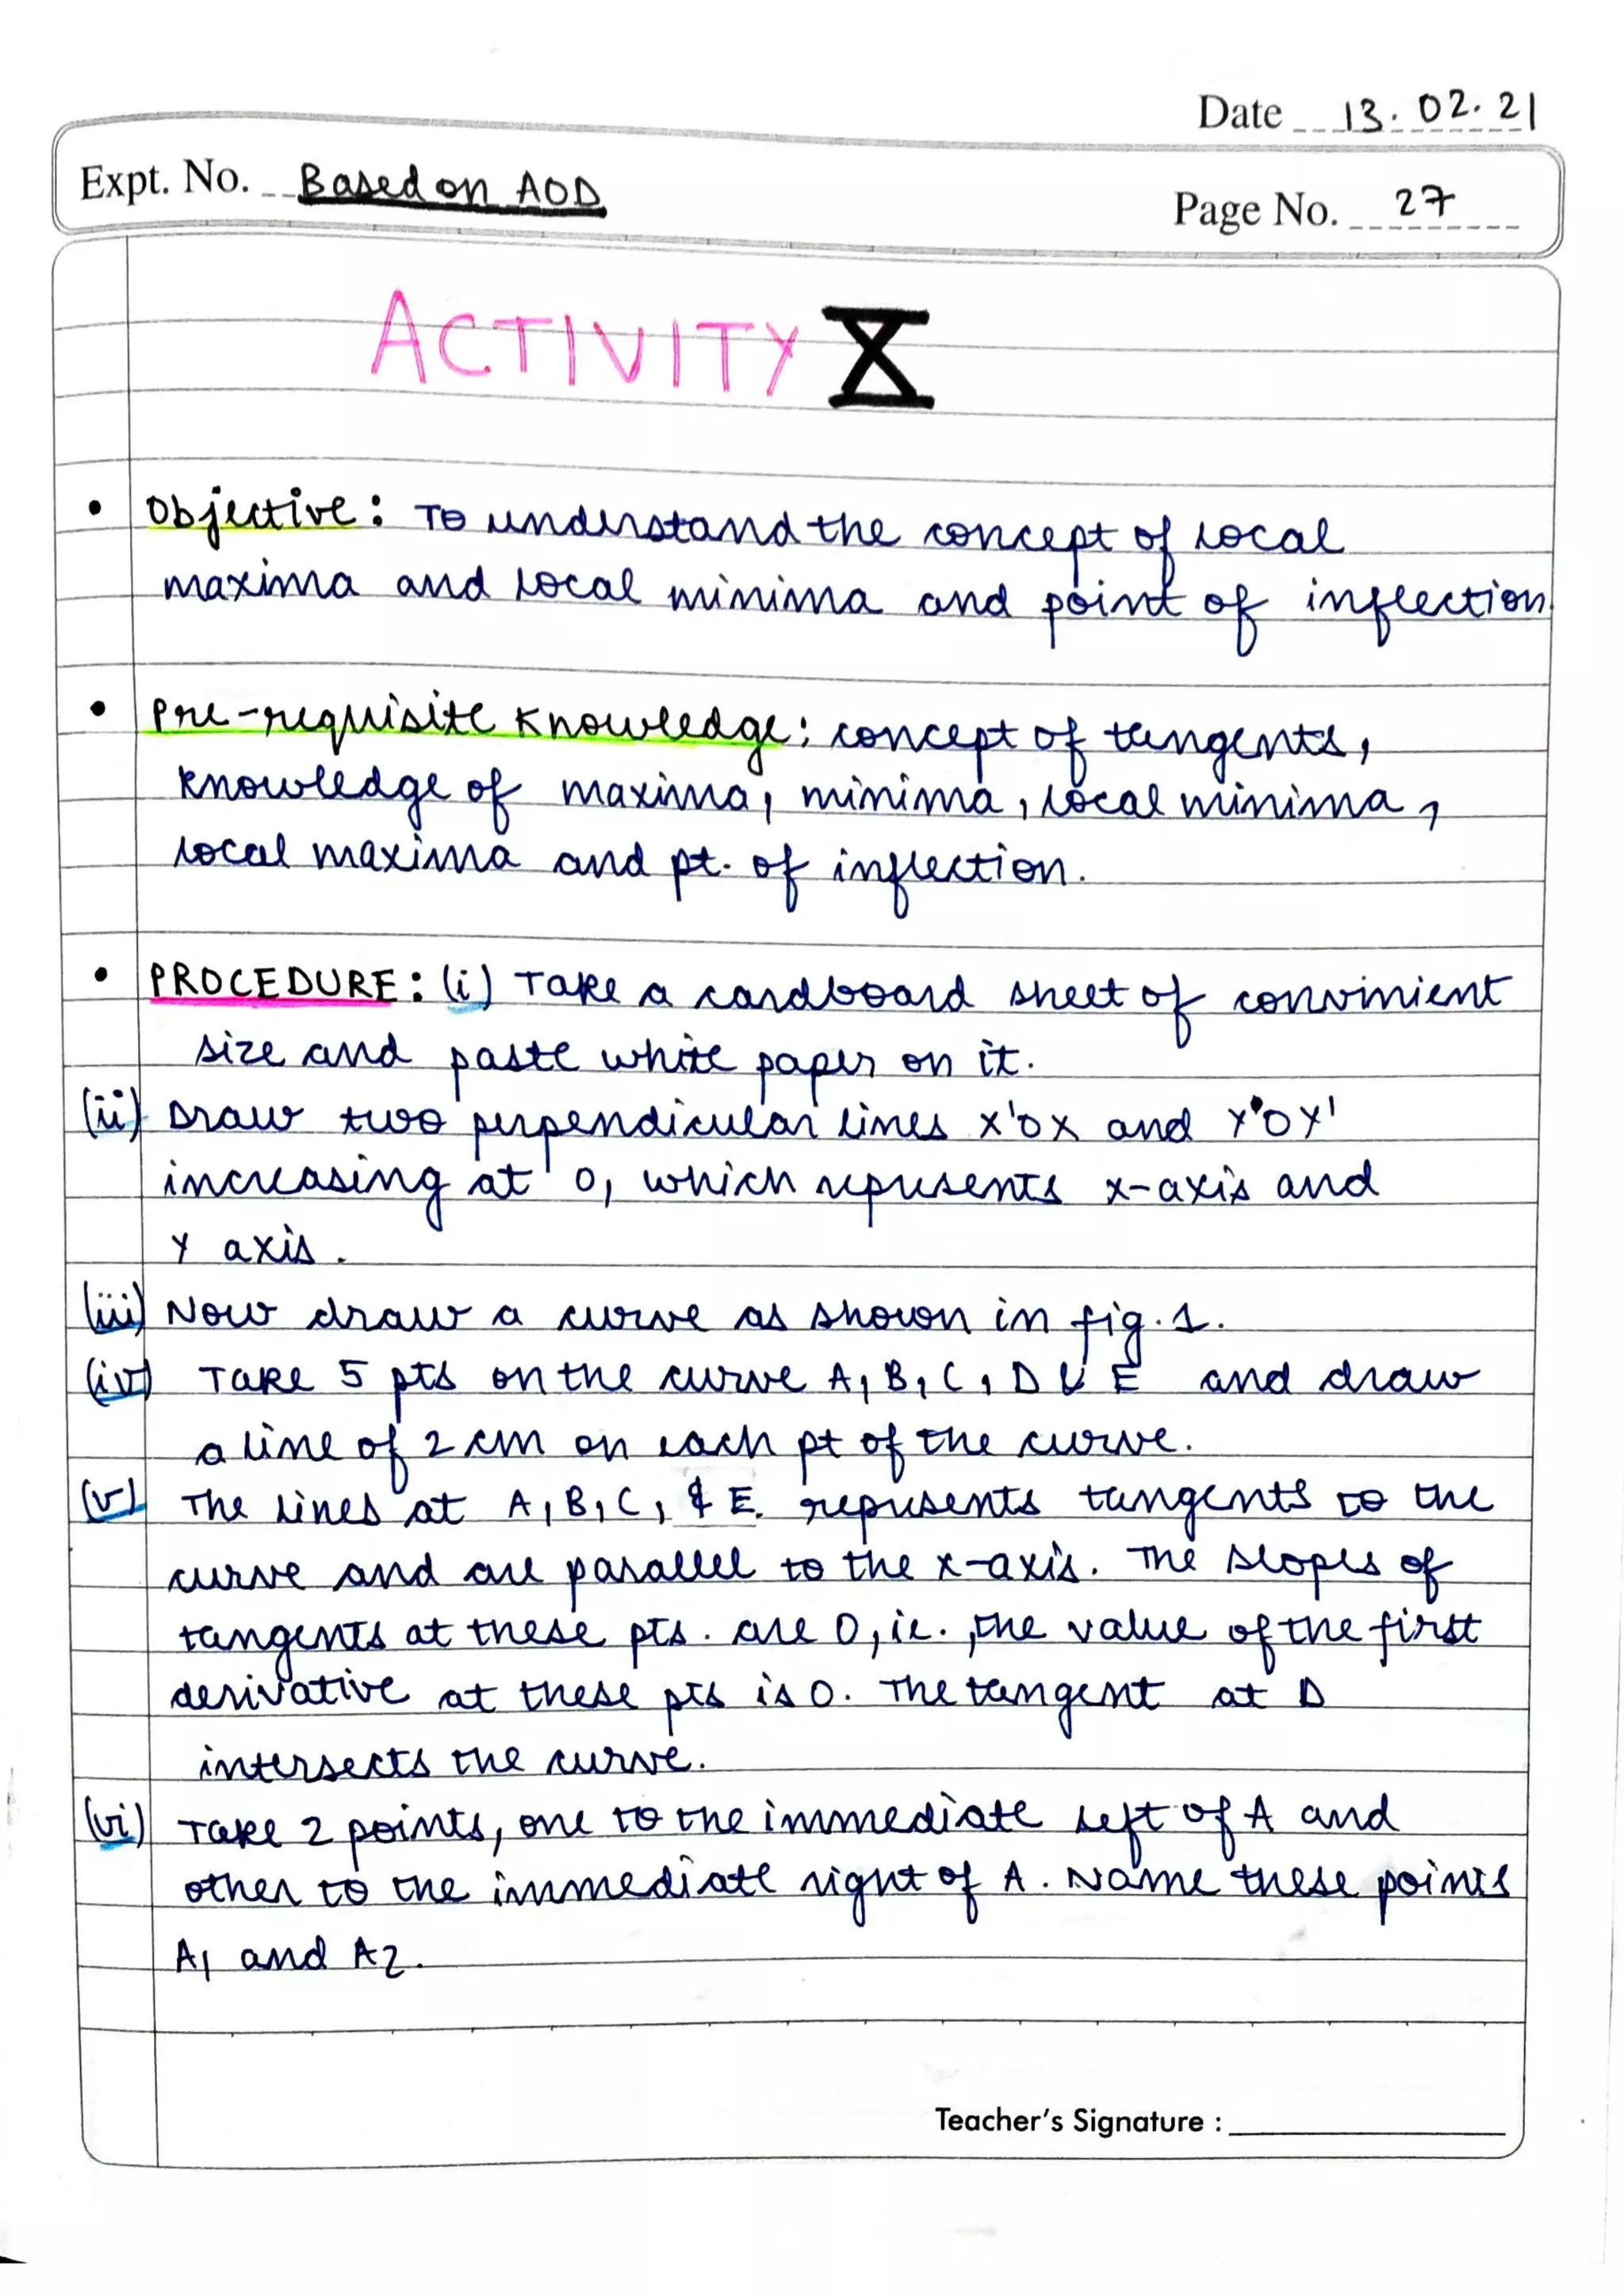 Date 13.02.21
Expt. No. Based on AOD
Page No. 27
ACTIVITY X
• Objective: To understand the concept of local
maxima and local minima and point of inflection.
• Pre-requisite Knowledge: concept of tangents,
knowledge of maxima, minima, local minima,
local maxima and pt. of inflection.
• PROCEDURE: (i) Take a cardboard sheet of convinient
size and paste white paper on it.
(ii) Draw two perpendicular lines X'OX and Y'OY'
increasing at O, which represents x-axis and
Y axis.
(iii) Now draw a curve as shown in fig. 1.
(iv) Take 5 pts on the curve A, B, C, D & E and draw
a line of 2 cm on each pt of the curve.
(v) The lines at A, B, C, & E. represents tangents to the
curve and are parallel to the x-axis. The slopes of
tangents at these pts. are 0, ie., the value of the first
derivative at these pts is 0. The tangent at D
intersects the curve.
(vi) Take 2 points, one to the immediate left of A and
other to the immediate right of A. Name these points
A1 and A2.
Teacher's Signature :